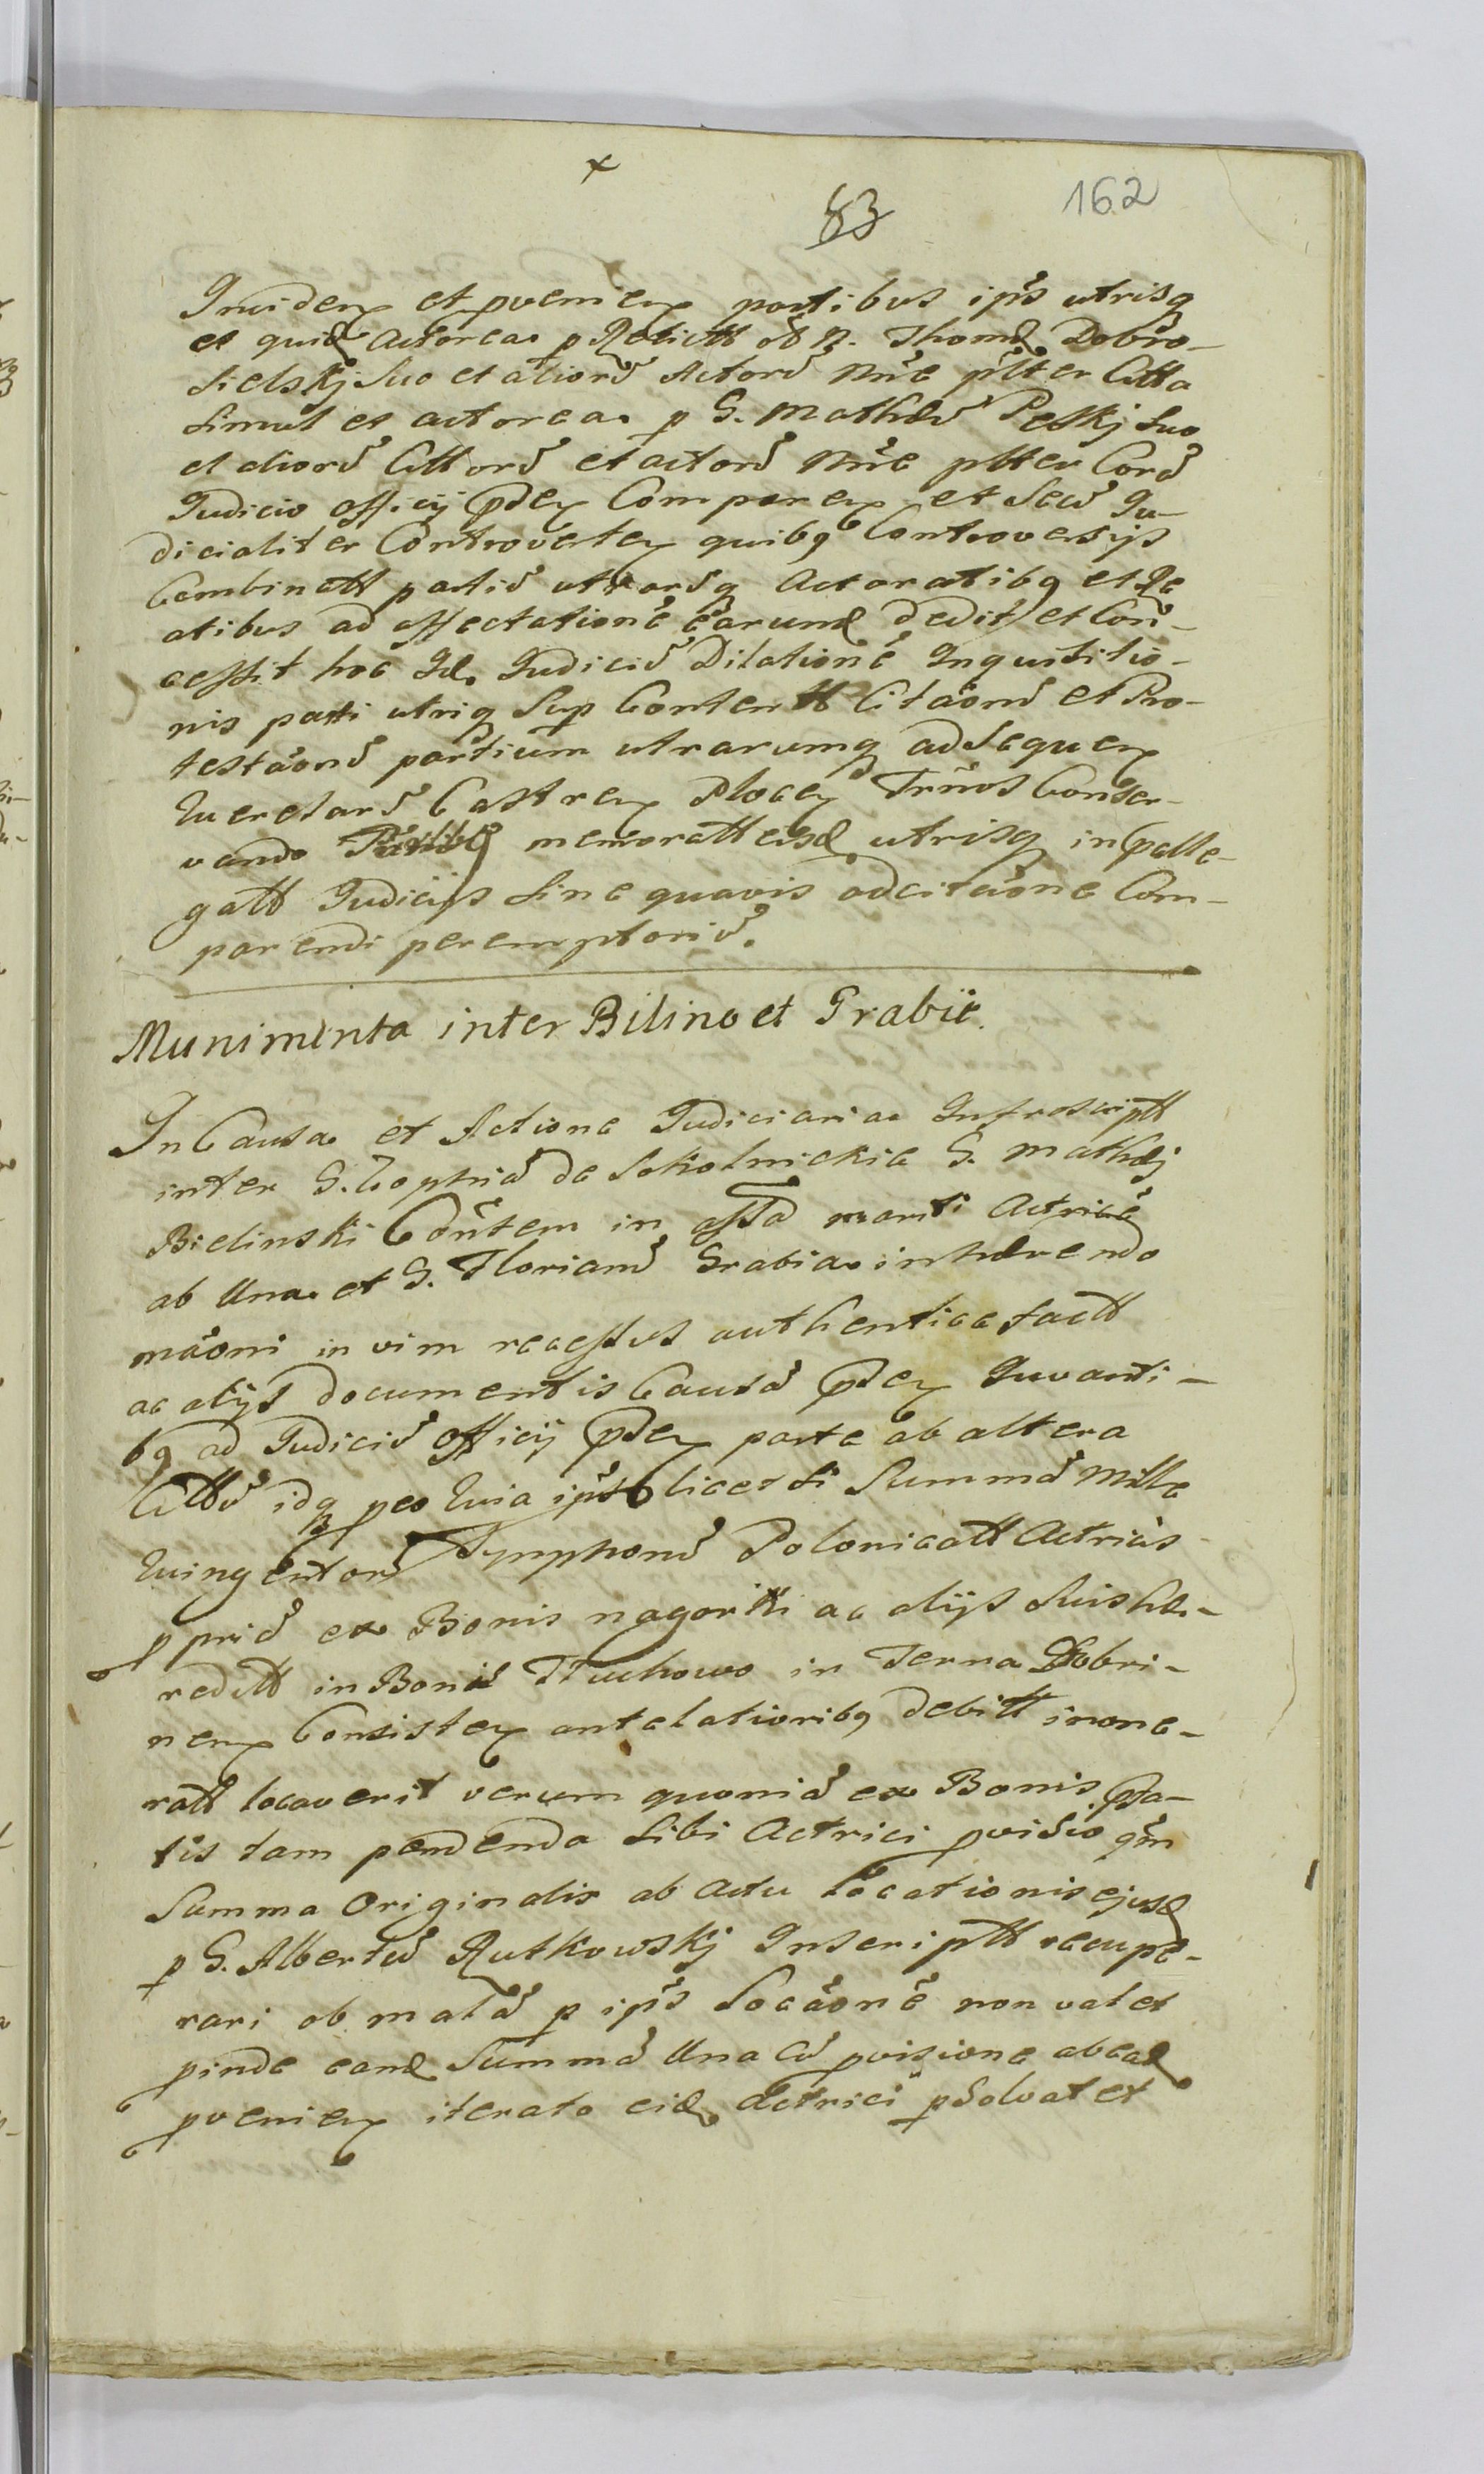 x
83 162
Inciden et proenien partibus ips utrisq
et quid Actorea p Relictt ol N. Thomæ Dobro-
sielskj suo et aliorũ Actorũ nñe pltter Citta
simul et actorea p G. Mathæũ Peskj suo
et aliorũ Cittorũ et actorũ nñe pltter Corã
Judicio officij pden Comparen et secũ Ju-
dicialiter Controverten quibq Controversijs
Combinatt partiũ utrarũq Actoratibq et Re
atibus ad affectationẽ earund dedit et Con-
cessit hoc Id. Judiciũ Dilationẽ Inquisitio-
nis parti utriq sup Contentt Citãonũ et Pro-
testãonũ partium utrarumq ad sequen
Querelarũ Castren Plocen Trños Conser-
vando memoratt eisd utrisq in pralle-
gatt Judicijs sine quavis adcitãone Com-
parendi peremptoriũ.
Munimenta inter Bilino et Grabie.
In Causa et Actione Judiciaria Infrascriptt
inter G. Zophiã de Sokolnickie G. Mathæj
Bielinski Coñtem in assa mariti Actricẽ
ab Una et G. Florianũ Grabia inhærendo
mãoni in vim recessus authentice factt
ac alijs documentis Causã pden Juvanti-
bq ad Judiciũ officij pden parte ab altera
Cittũ idq peo Quia ipsa licet si Summã Mille
Quingentorũ Tynphonũ Polonicatt Actricis
ppriã ex Bonis Nagorki ac alijs suis hæ-
reditt in Bonis Tłuchowo in Terra Dobri-
nen Consisten antelatioribq debitt inone-
ratt locaverit verum quoniã ex Bonis pda-
tis tam pendenda sibi Actrici pvisio qm
Summa Originalis ab Actu Locationis ejusd
p G. Albertũ Rutkowskj Inscriptt recupe-
rari ob malã p ips Locãonẽ non valet
pinde eand Summã Una cũ pvisione ab ead
pvenien iterato eid Actrici psolvat et